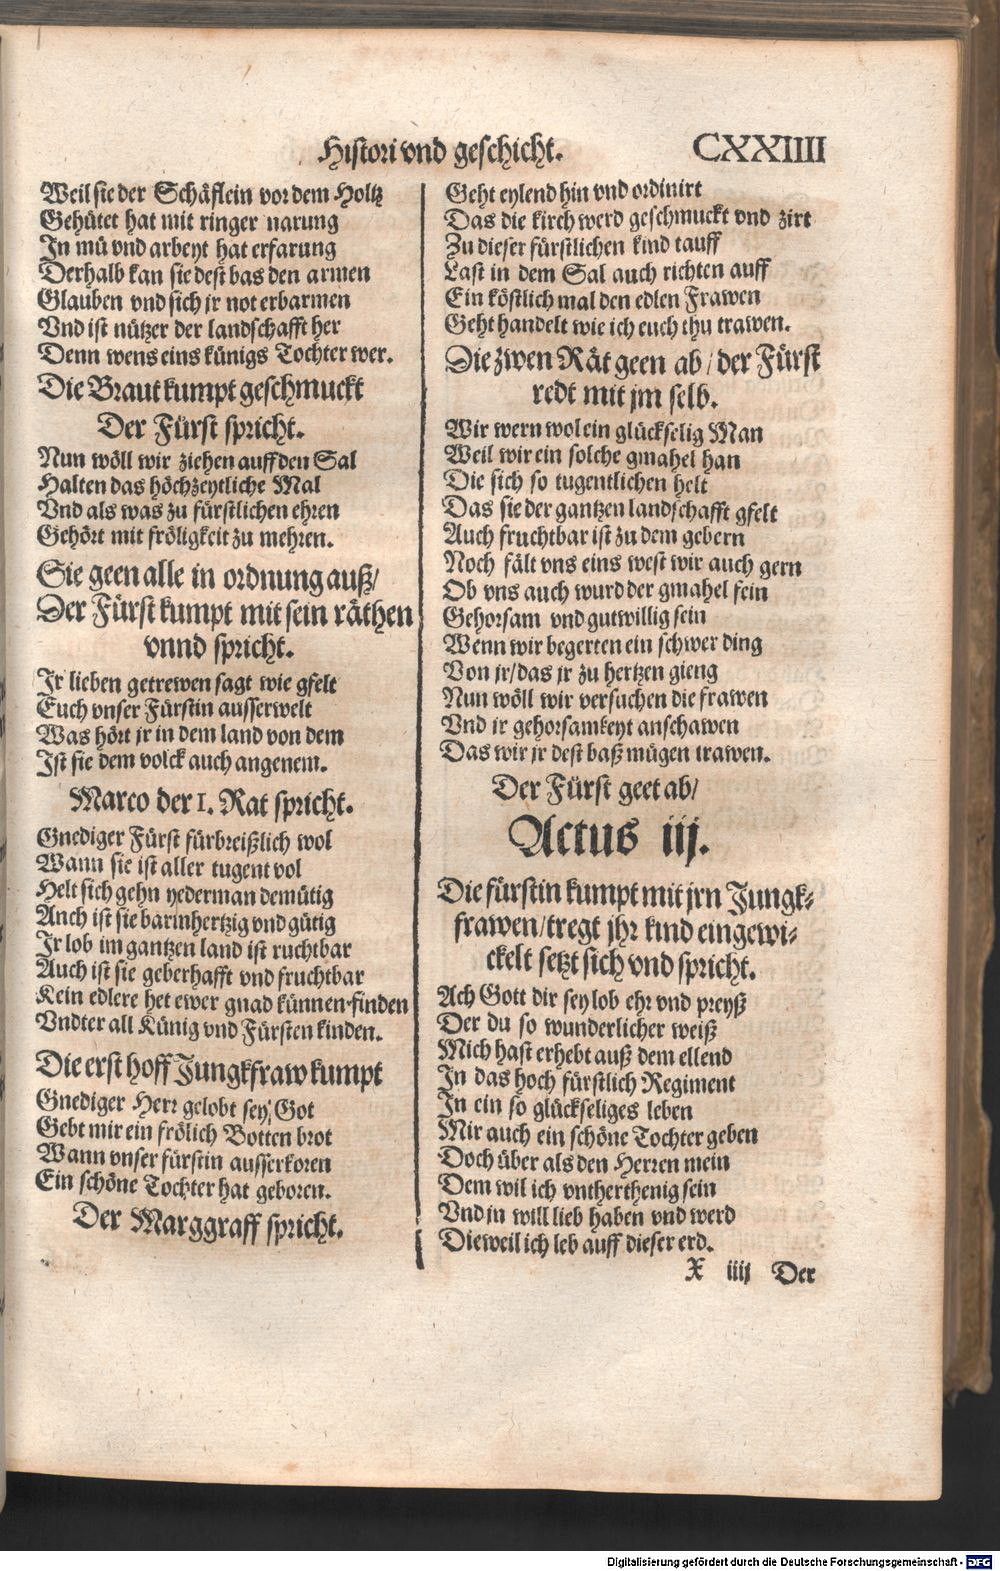 Histori vnd geschicht.
CXXIIII
Weil sie der Schäflein vor dem Holtz
Gehütet hat mit ringer narung
In mü vnd arbeyt hat erfarung
Derhalb kan sie dest bas den armen
Glauben vnd sich jr not erbarmen
Vnd ist nützer der landschafft her
Denn wens eins künigs Tochter wer.
Die Braut kumpt geschmuckt
Der Fürst spricht.
Nun wöll wir ziehen auff den Sal
Halten das höchzeytliche Mal
Vnd als was zu fürstlichen ehren
Gehört mit fröligkeit zu mehren.
Sie geen alle in ordnung auß/
Der Fürst kumpt mit sein räthen
vnnd spricht.
Ir lieben getrewen sagt wie gfelt
Euch vnser Fürstin ausserwelt
Was hört jr in dem land von dem
Ist sie dem volck auch angenem.
Marco der 1. Rat spricht.
Gnediger Fürst fürbreißlich wol
Wann sie ist aller tugent vol
Helt sich gehn yederman demütig
Anch ist sie barmhertzig vnd gütig
Ir lob im gantzen land ist ruchtbar
Auch ist sie geberhafft vnd fruchtbar
Kein edlere het ewer gnad künnen finden
Vndter all Künig vnd Fürsten kinden.
Die erst hoff Jungkfraw kumpt
Gnediger Herr gelobt sey Got
Gebt mir ein frölich Botten brot
Wann vnser fürstin ausserkoren
Ein schöne Tochter hat geboren.
Der Marggraff spricht.
Geht eylend hin vnd ordinirt
Das die kirch werd geschmuckt vnd zirt
Zu dieser fürstlichen kind tauff
Last in dem Sal auch richten auff
Ein köstlich mal den edlen Frawen
Geht handelt wie ich euch thu trawen.
Die zwen Rät geen ab/ der Fürst
redt mit jm selb.
Wir wern wol ein glückselig Man
Weil wir ein solche gmahel han
Die sich so tugentlichen helt
Das sie der gantzen landschafft gfelt
Auch fruchtbar ist zu dem gebern
Noch fält vns eins west wir auch gern
Ob vns auch wurd der gmahel fein
Gehorsam vnd gutwillig sein
Wenn wir begerten ein schwer ding
Von jr/ das jr zu hertzen gieng
Nun wöll wir versuchen die frawen
Vnd ir gehorsamkeyt anschawen
Das wir jr dest baß mügen trawen.
Der Fürst geet ab/
Actus iij.
Die fürstin kumpt mit jrn Jungk-
frawen/ tregt jhr kind eingewi-
ckelt setzt sich vnd spricht.
Ach Gott dir sey lob ehr vnd preyß
Der du so wunderlicher weiß
Mich hast erhebt auß dem ellend
In das hoch fürstlich Regiment
In ein so glückseliges leben
Mir auch ein schöne Tochter geben
Doch über als den Herren mein
Dem wil ich vntherthenig sein
Vnd jn will lieb haben vnd werd
Dieweil ich leb auff dieser erd.
X iiij Der
Digitalisierung gefördert durch die Deutsche Forschungsgemeinschaft - DFG